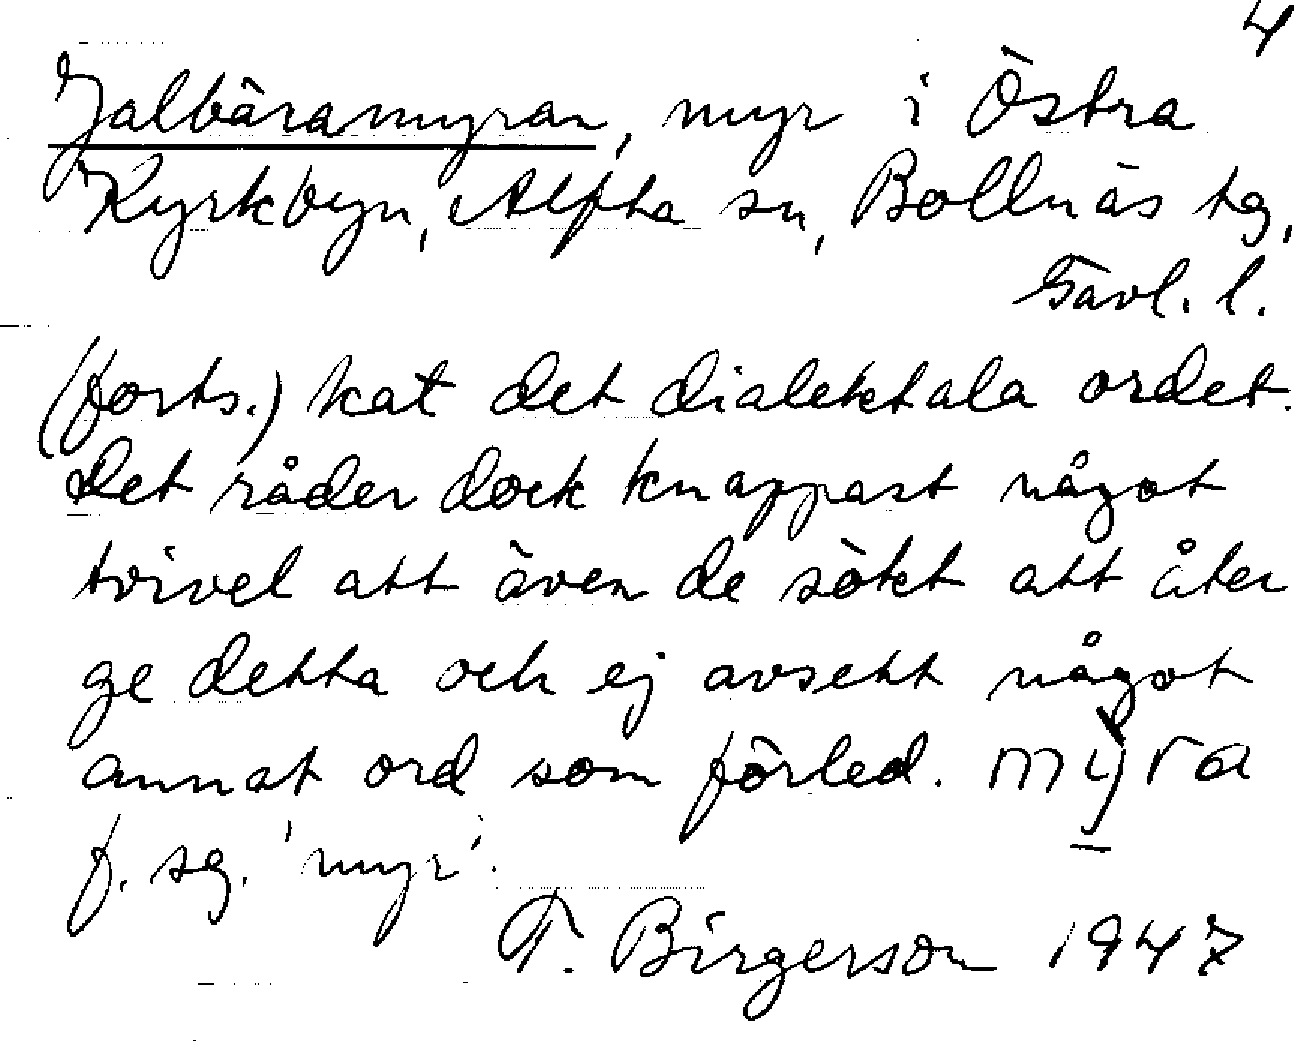 4
Jalbäramyran, myr i Östra
Kyrkbyn, Alfta sn, Bollnäs tg,
Gävl. l.
(forts.) kat det dialektala ordet.
Det råder dock knappast något
tvivel att även de sökt att åter
ge detta och ej avsett något
annat ord som förled. mỳra
f. sg. 'myr'.
T. Birgerson 1947